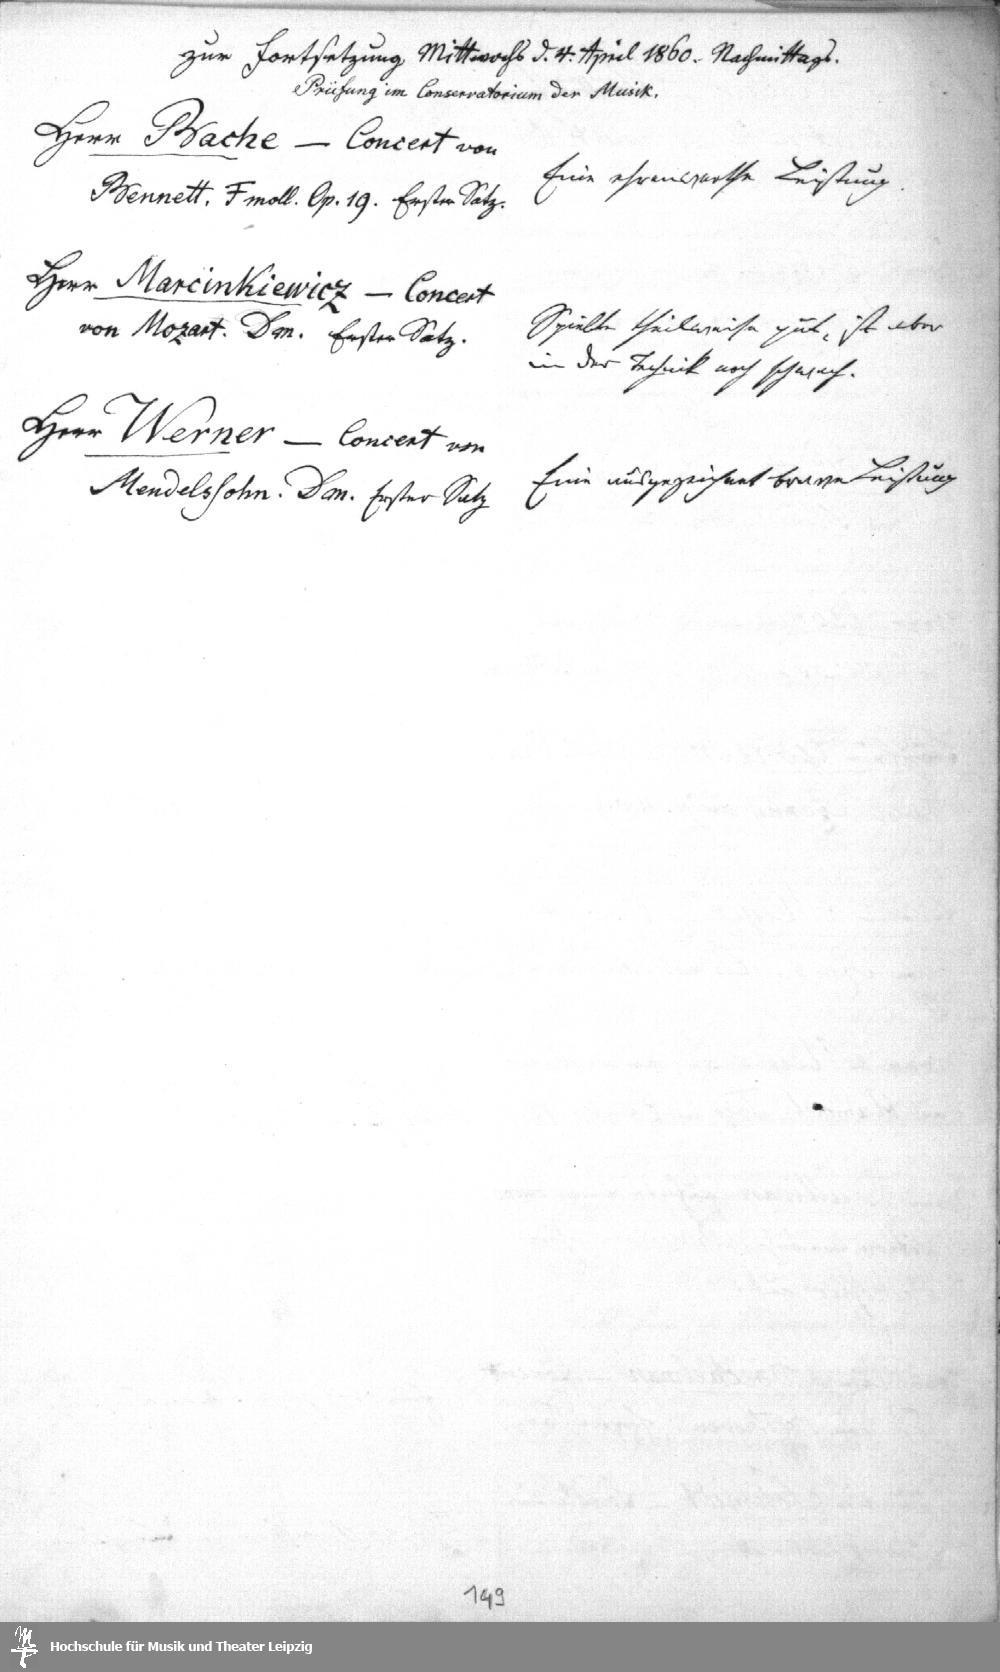 zur Fortsetzung Mittwochs d. 4. April 1860. Nachmittags.
Prüfung im Conservatorium der Musik.
Herr Bache — Concert von
Bennett. F moll. Op. 19. Erster Satz.
Eine ehrenwerthe Leistung.
Herr Marcinkiewicz — Concert
von Mozart. Dm. Erster Satz.
Spielte theilweise gut, ist aber
in der Technik noch schwach.
Herr Werner — Concert von
Mendelssohn. Dm. Erster Satz
Eine ausgezeichnet brave Leistung
149
Hochschule für Musik und Theater Leipzig